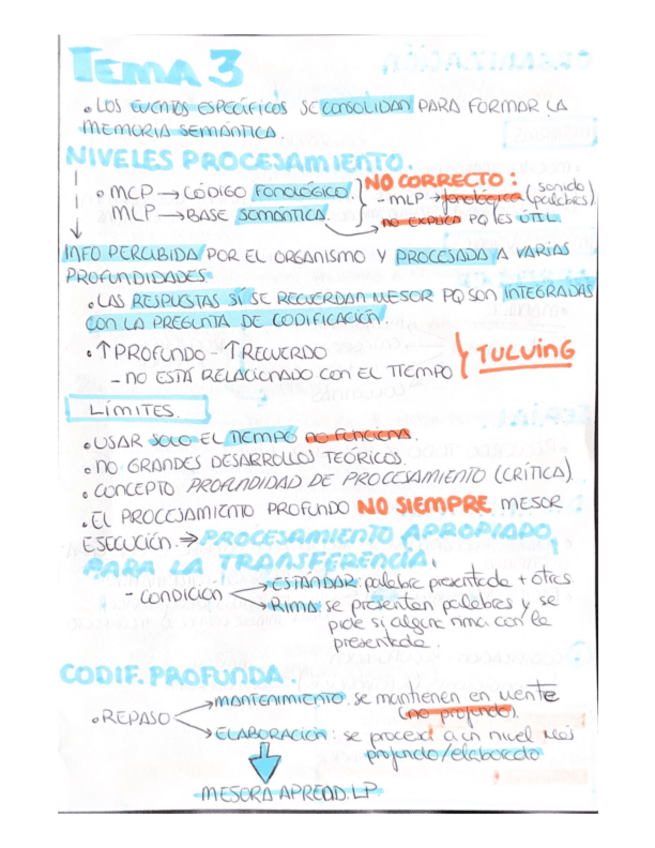 TEMA 3
• LOS EVENTOS ESPECÍFICOS SE CONSOLIDAN PARA FORMAR LA
MEMORIA SEMÁNTICA.
NIVELES PROCESAMIENTO.
• MCP → CÓDIGO FONOLÓGICO.
MLP → BASE SEMÁNTICA.
NO CORRECTO:
- MLP → fonológica (sonido palabras)
NO EXPLICA PQ ES ÚTIL
INFO PERCIBIDA POR EL ORGANISMO Y PROCESADA A VARIAS
PROFUNDIDADES
• LAS RESPUESTAS SÍ SE RECUERDAN MEJOR PQ SON INTEGRADAS
CON LA PREGUNTA DE CODIFICACIÓN.
• ↑ PROFUNDO - ↑ RECUERDO
- NO ESTÁ RELACIONADO CON EL TIEMPO
TULVING
LÍMITES.
• USAR SOLO EL TIEMPO NO FUNCIONA.
• NO GRANDES DESARROLLOS TEÓRICOS.
• CONCEPTO PROFUNDIDAD DE PROCESAMIENTO (CRÍTICA)
• EL PROCESAMIENTO PROFUNDO NO SIEMPRE MEJOR
EJECUCIÓN. ⇒ PROCESAMIENTO APROPIADO
PARA LA TRANSFERENCIA.
- CONDICIÓN → ESTÁNDAR: palabra presentada + otras
→ RIMA: se presentan palabras y se
pide si alguna rima con la
presentada.
CODIF. PROFUNDA.
• REPASO → MANTENIMIENTO: se mantienen en mente
(no profundo).
→ ELABORACIÓN: se procesa a un nivel más
profundo/elaborado
MEJORA APREND. LP